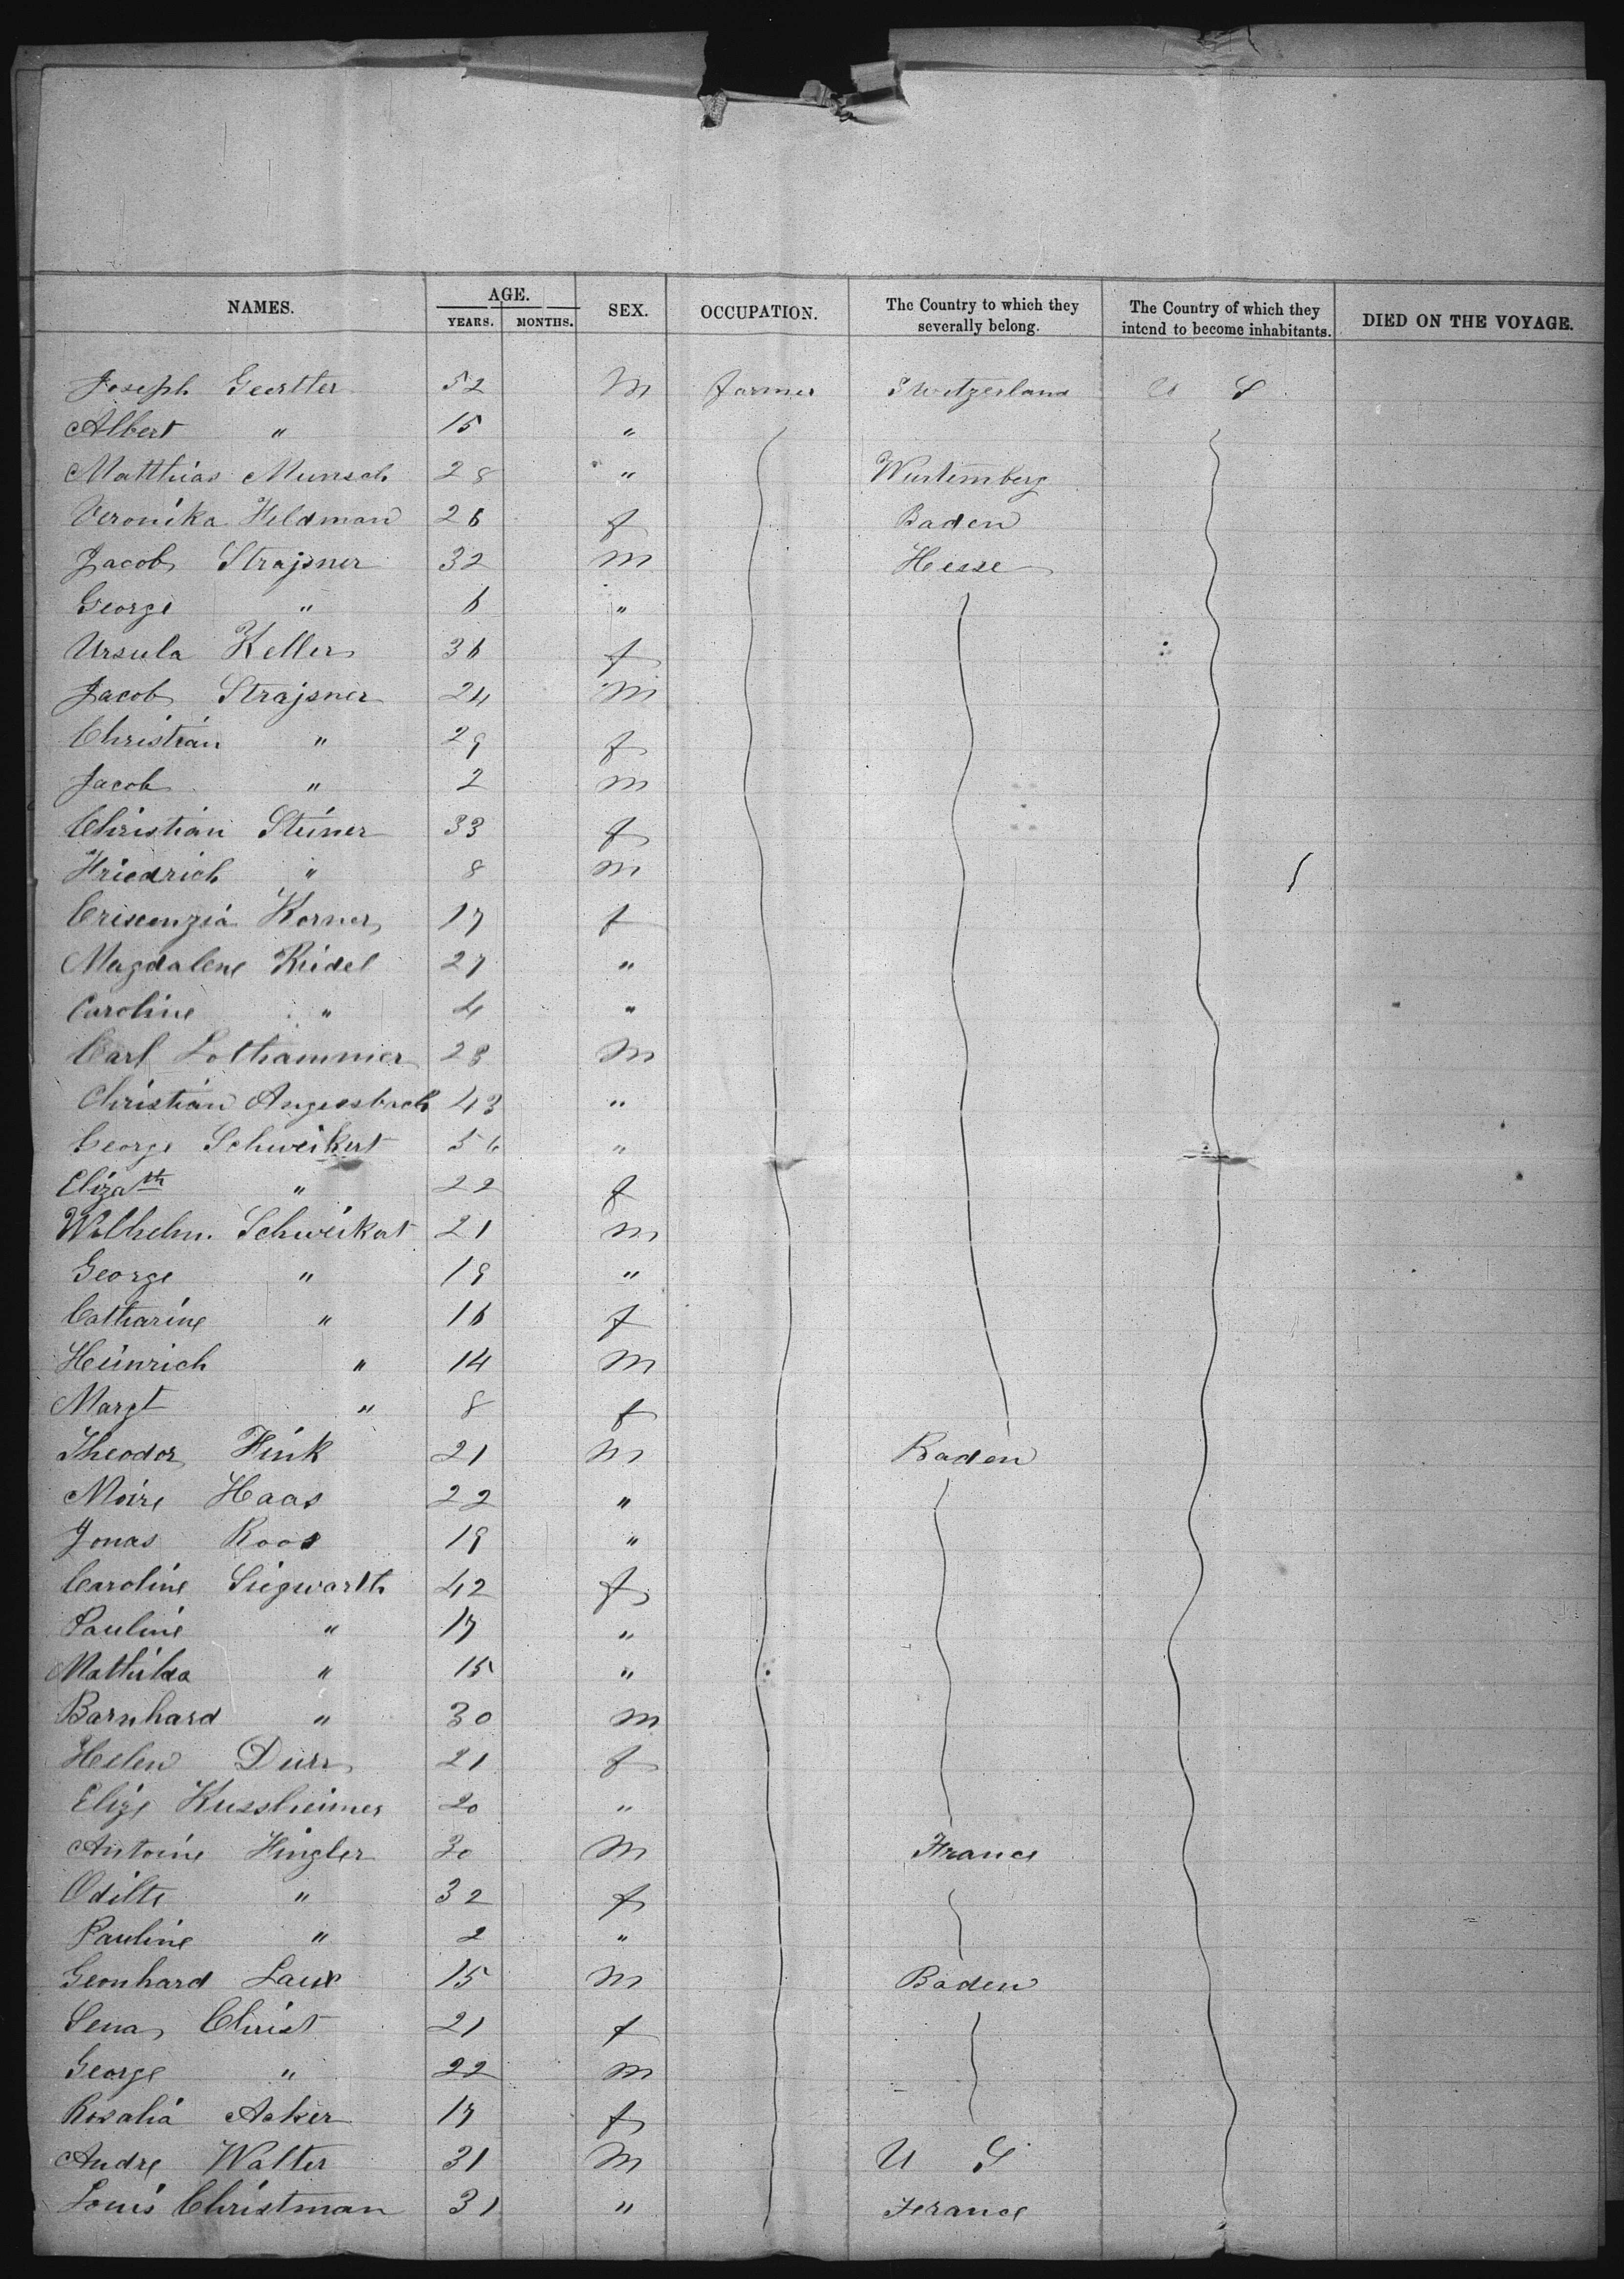 NAMES. AGE. YEARS. MONTHS. SEX. OCCUPATION. The Country to which they severally belong. The Country of which they intend to become inhabitants. DIED ON THE VOYAGE.
Joseph Geertler 52 M farmer Switzerland U S
Albert " 15 "
Matthias Munsch 28 " Wurtemberg
Veronika Feldman 26 f Baden
Jacob Strajsner 32 M Hesse
George " 6 "
Ursula Keller 36 f
Jacob Strajsner 24 M
Christian " 29 f
Jacob " 2 M
Christian Steiner 33 f
Friedrich " 8 M
Criscenzia Korner 17 f
Magdalene Riedel 27 "
Caroline " 4 "
Carl Lothammer 28 M
Christian Angersbach 43 "
George Schweikert 56 "
Eliza th " 22 f
Wilhelm. Schweikat 21 M
George " 19 "
Catharine " 16 f
Heinrich " 14 M
Margt " 8 f
Theodor Fink 21 M Baden
Moire Haas 22 "
Jonas Roos 19 "
Caroline Siegwarth 42 f
Pauline " 17 "
Mathilda " 15 "
Barnhard " 30 M
Helen Durr 21 f
Elize Kussheimer 20 "
Antoine Hingler 30 M France
Odilte " 32 f
Pauline " 2 "
Geonhard Laux 15 M Baden
Lena Christ 21 f
George " 22 M
Rosalia Acker 17 f
Andre Walter 31 M U S
Louis Christman 31 " France